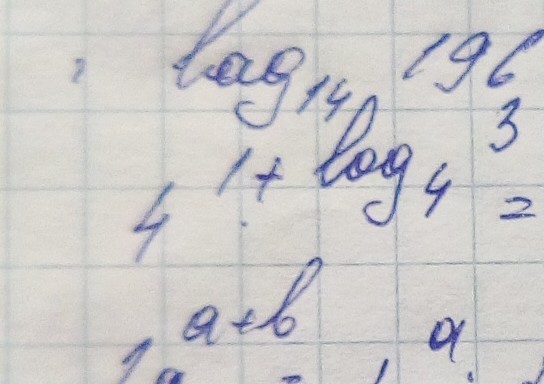 : log₁₄ 196
4^(1+log₄ 3) =
a+b a